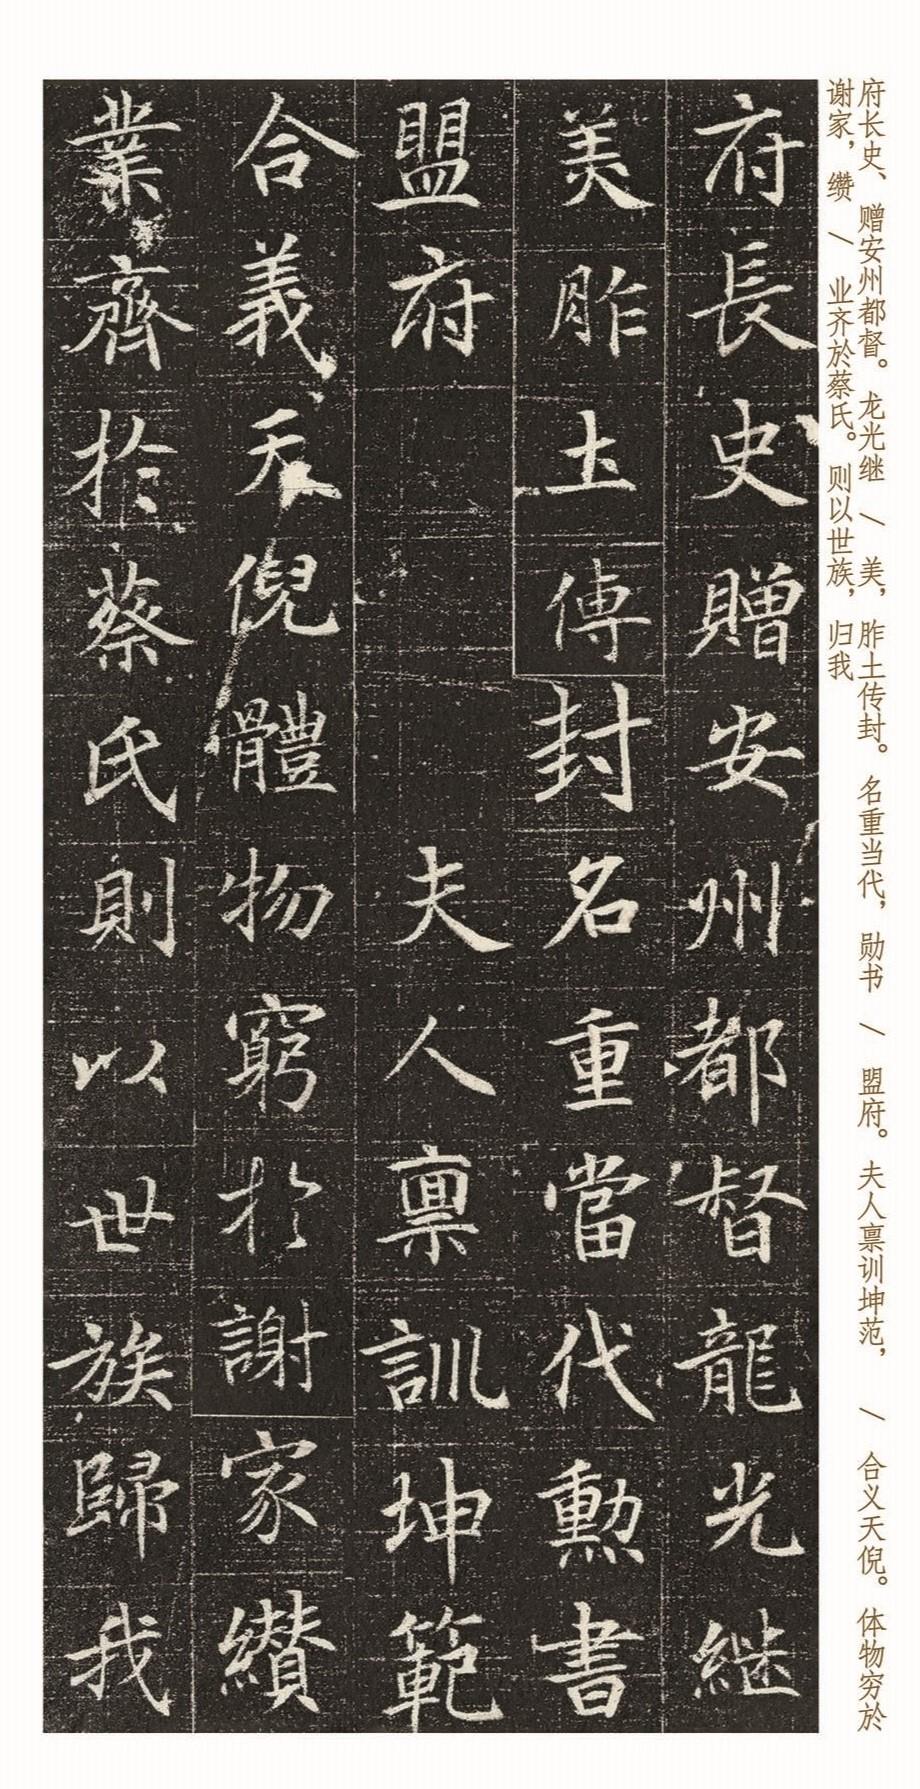 府长史、赠安州都督。龙光继 / 美,胙土传封。名重当代,勋书 / 盟府。夫人禀训坤范, / 合义天倪。体物穷於
谢家,缵 / 业齐於蔡氏。则以世族,归我
府長史贈安州都督龍光継
美胙土傳封名重當代勲書
盟府夫人禀訓坤範
合義天倪體物窮於謝家纘
業齊於蔡氏則以世族歸我